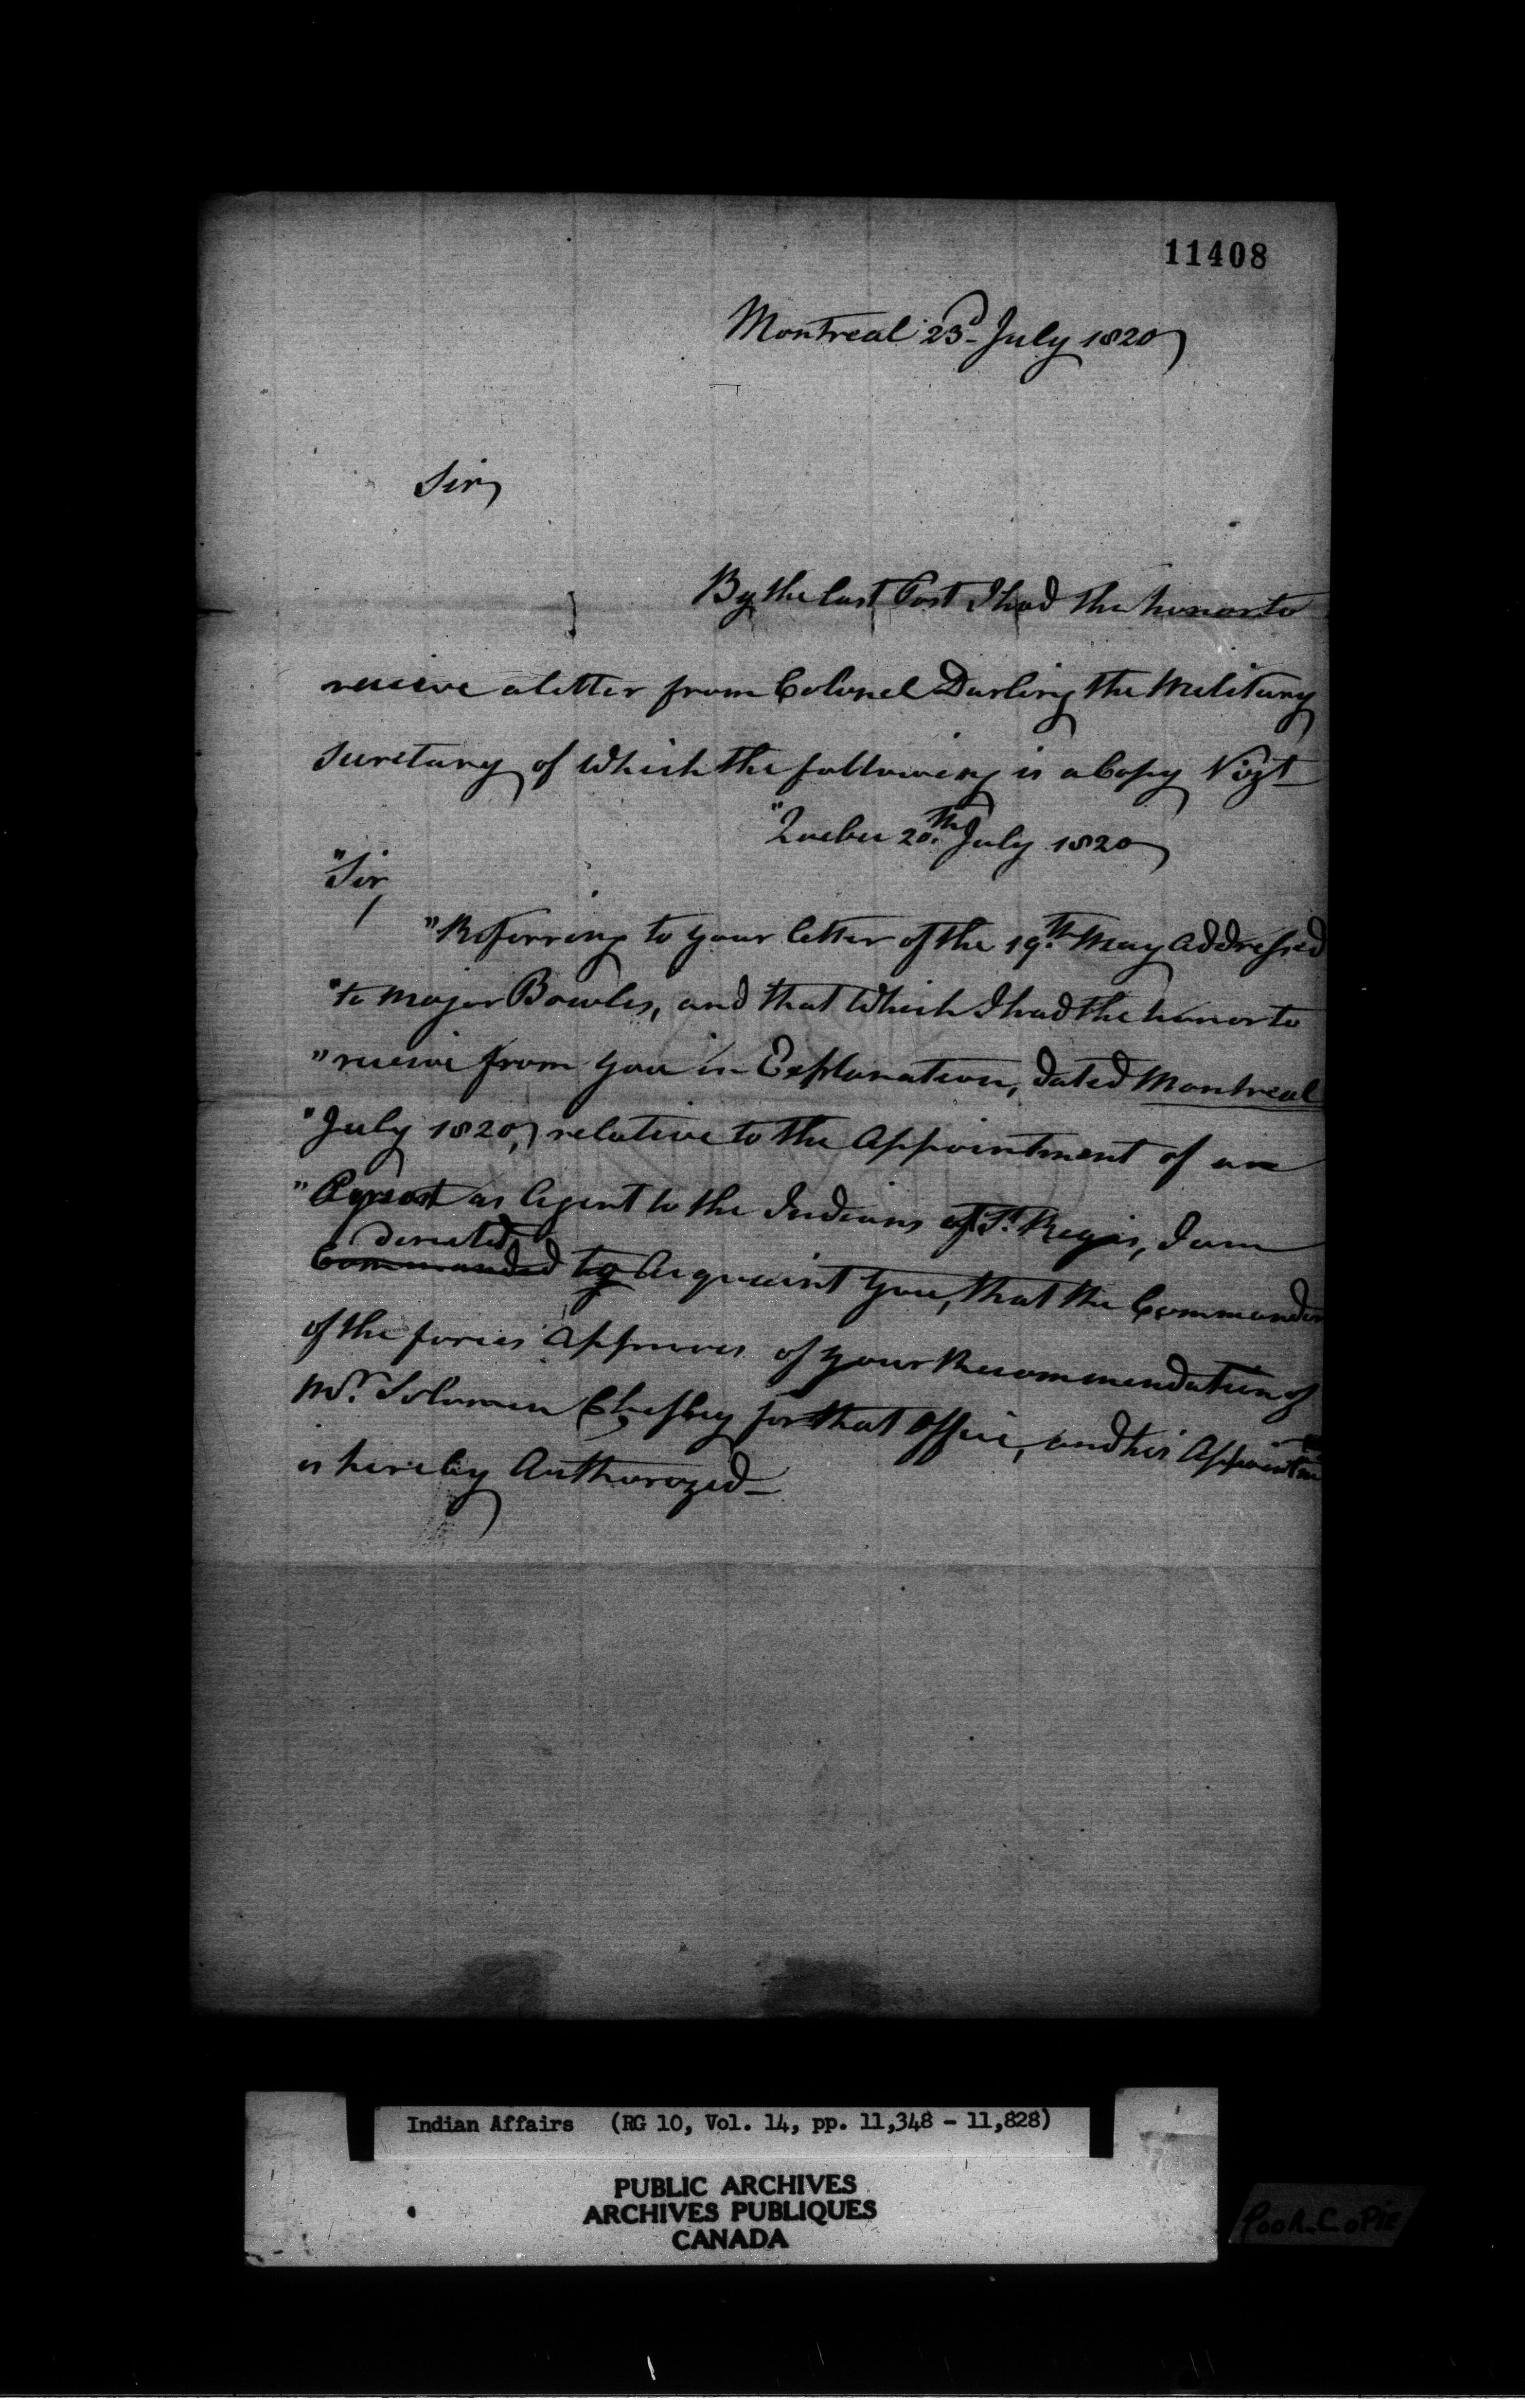 11408
Montreal 23d July 1820
Sir,
By the last Post I had the honor to
receive a letter from Colonel Darling the Military
Secretary of which the following is a Copy Vizt
"Quebec 20.th July 1820
"Sir,
"Referring to your letter of the 19.th May addressed
"to Major Bowles, and that which I had the honor to
"receive from you in Explanation, dated Montreal
"July 1820, relative to the Appointment of an
" as Agent to the Indians of St. Regis, I am
directed
Commanded to Acquaint you, that the Commander
of the forces Approves of your Recommendation of
Mr. Solomon Chesley for that Office, and his Appointm
is hereby Authorized—
Indian Affairs (RG 10, Vol. 14, pp. 11,348 - 11,828)
PUBLIC ARCHIVES
ARCHIVES PUBLIQUES
CANADA
POOR COPIE